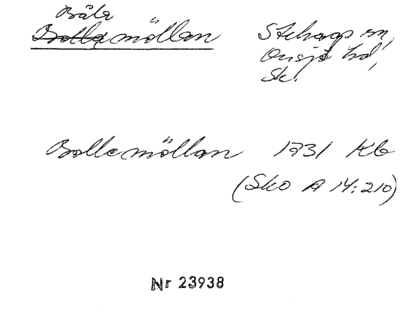 Båla
Bollemöllan Stehags sn,
Onsjö hd,
Sk.
Bollemöllan 1731 Kb
(Sko A 14:210)
Nr 23938